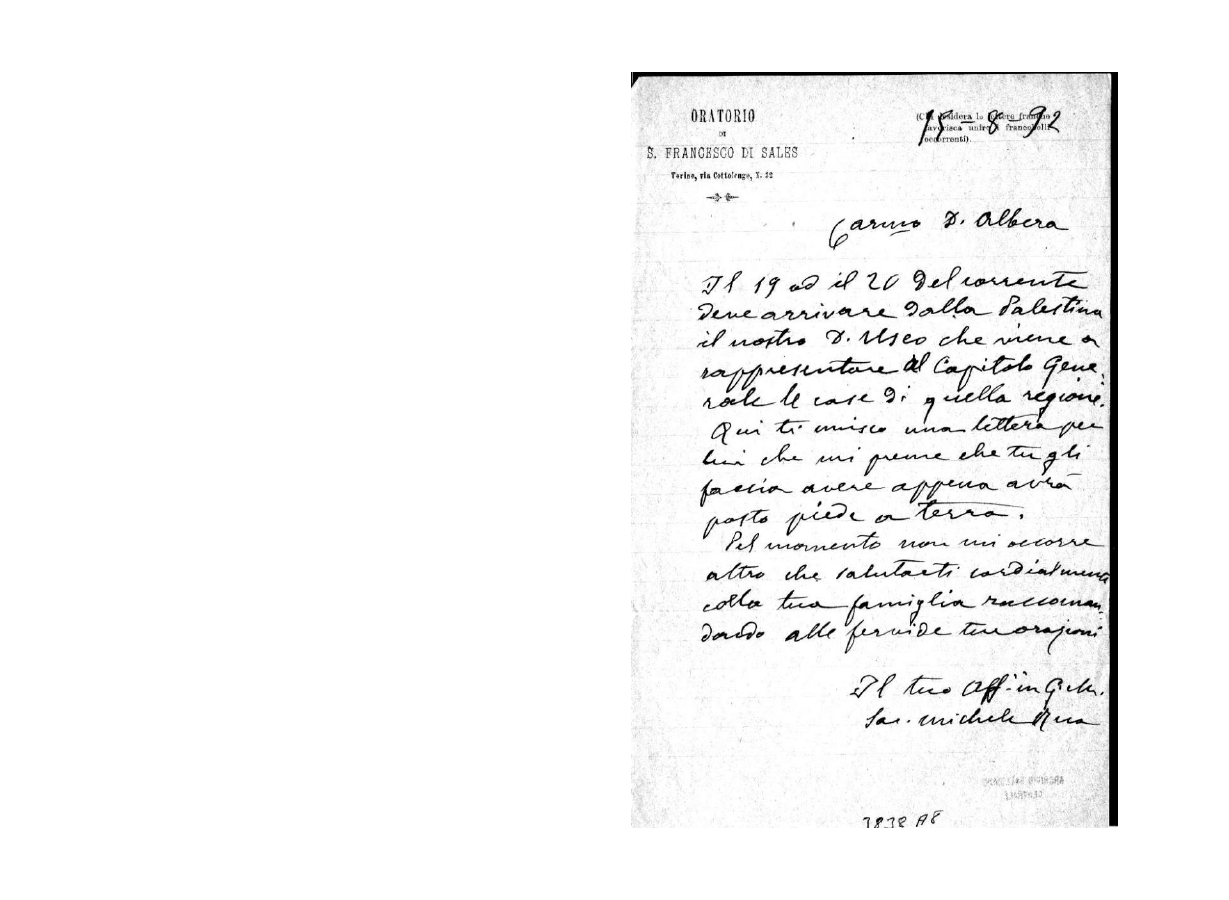 ORATORIO
DI
S. FRANCESCO DI SALES
Torino, via Cottolengo, N. 32
15-8-92
(Chi desidera la lettere franche
favorisca unire i francobolli
occorrenti).
Carmo D. Albera
Il 19 od il 20 del corrente
deve arrivare dalla Palestina
il nostro D. Useo che viene a
rappresentare al Capitolo Gene-
rale le case di quella regione.
Qui ti unisco una lettera per
lui che mi preme che tu gli
faccia avere appena avrà
posto piede a terra.
Pel momento non mi occorre
altro che salutarti cordialmente
colla tua famiglia raccoman-
dando alle fervide tue orazioni
Il tuo Aff. in G. e M.
Sac. Michele Rua
ARCHIVIO SALESIANO
CENTRALE
3838 A8